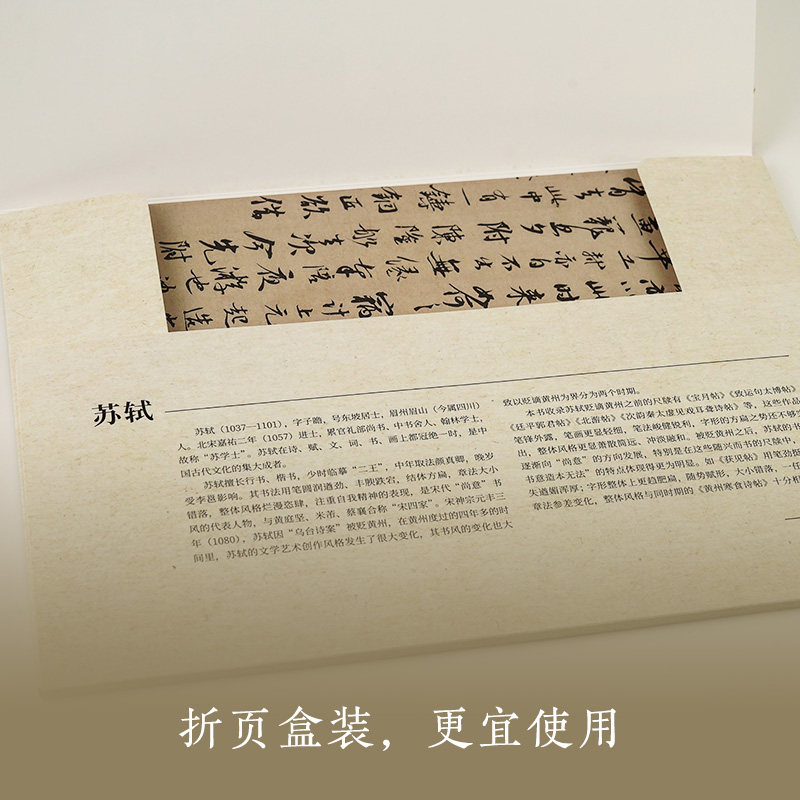 苏轼
苏轼（1037—1101），字子瞻，号东坡居士，眉州眉山（今属四川）
人。北宋嘉祐二年（1057）进士，累官礼部尚书、中书舍人、翰林学士，
故称“苏学士”。苏轼在诗、赋、文、词、书、画上都冠绝一时，是中
国古代文化的集大成者。
苏轼擅长行书、楷书，少时临摹“二王”，中年取法颜真卿，晚岁
受李邕影响。其书法用笔圆润遒劲、丰腴跌宕，结体方扁，章法大小
错落，整体风格烂漫恣肆，注重自我精神的表现，是宋代“尚意”书
风的代表人物，与黄庭坚、米芾、蔡襄合称“宋四家”。宋神宗元丰三
年（1080），苏轼因“乌台诗案”被贬黄州，在黄州度过的四年多的时
间里，苏轼的文学艺术创作风格发生了很大变化，其书风的变化也大
致以贬谪黄州为界分为两个时期。
本书收录苏轼贬谪黄州之前的尺牍有《宝月帖》《致运句太博帖》
《廷平郭君帖》《北斋帖》《次韵秦太虚见戏耳聋诗帖》等，这些作品
笔锋外露，笔画更显轻细，笔法峻健锐利，字形的方扁之势还不够突
出，整体风格更显萧散简远、冲淡融和。被贬黄州之后，苏轼的书
逐渐向“尚意”的方向发展，特别是在这些随兴而书的尺牍中，
书意造本无法”的特点体现得更为明显。如《获见帖》用笔劲挺
失遒媚浑厚；字形整体上更趋肥扁，随势赋形，大小错落，一任
章法参差变化，整体风格与同时期的《黄州寒食诗帖》十分相
折页盒装，更宜使用